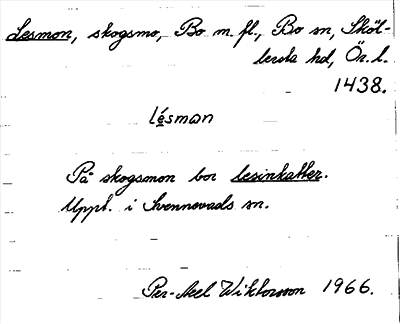 Lesmon, skogsmo, Bo m. fl., Bo sn, Sköl-
lersta hd, Ör. l.
1438.
lésmon
På skogsmon bor lesinkatter.
Uppt. i Svennevads sn.
Per-Axel Wiktorsson 1966.